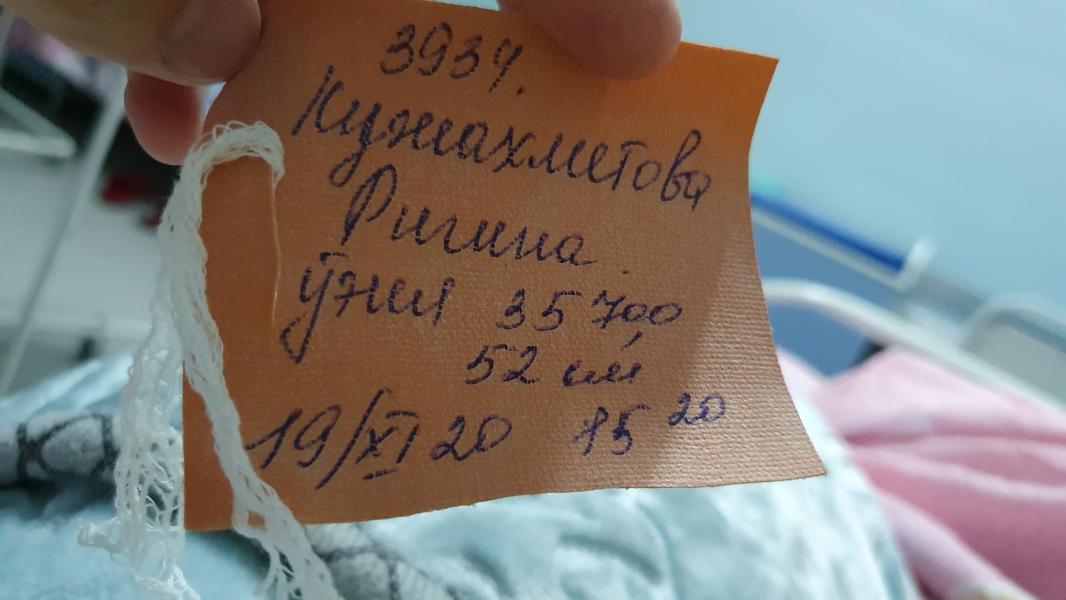 3934.
Кужахметова
Ригина.
ўғил 35 700
52 см
19/XI 20 15 20